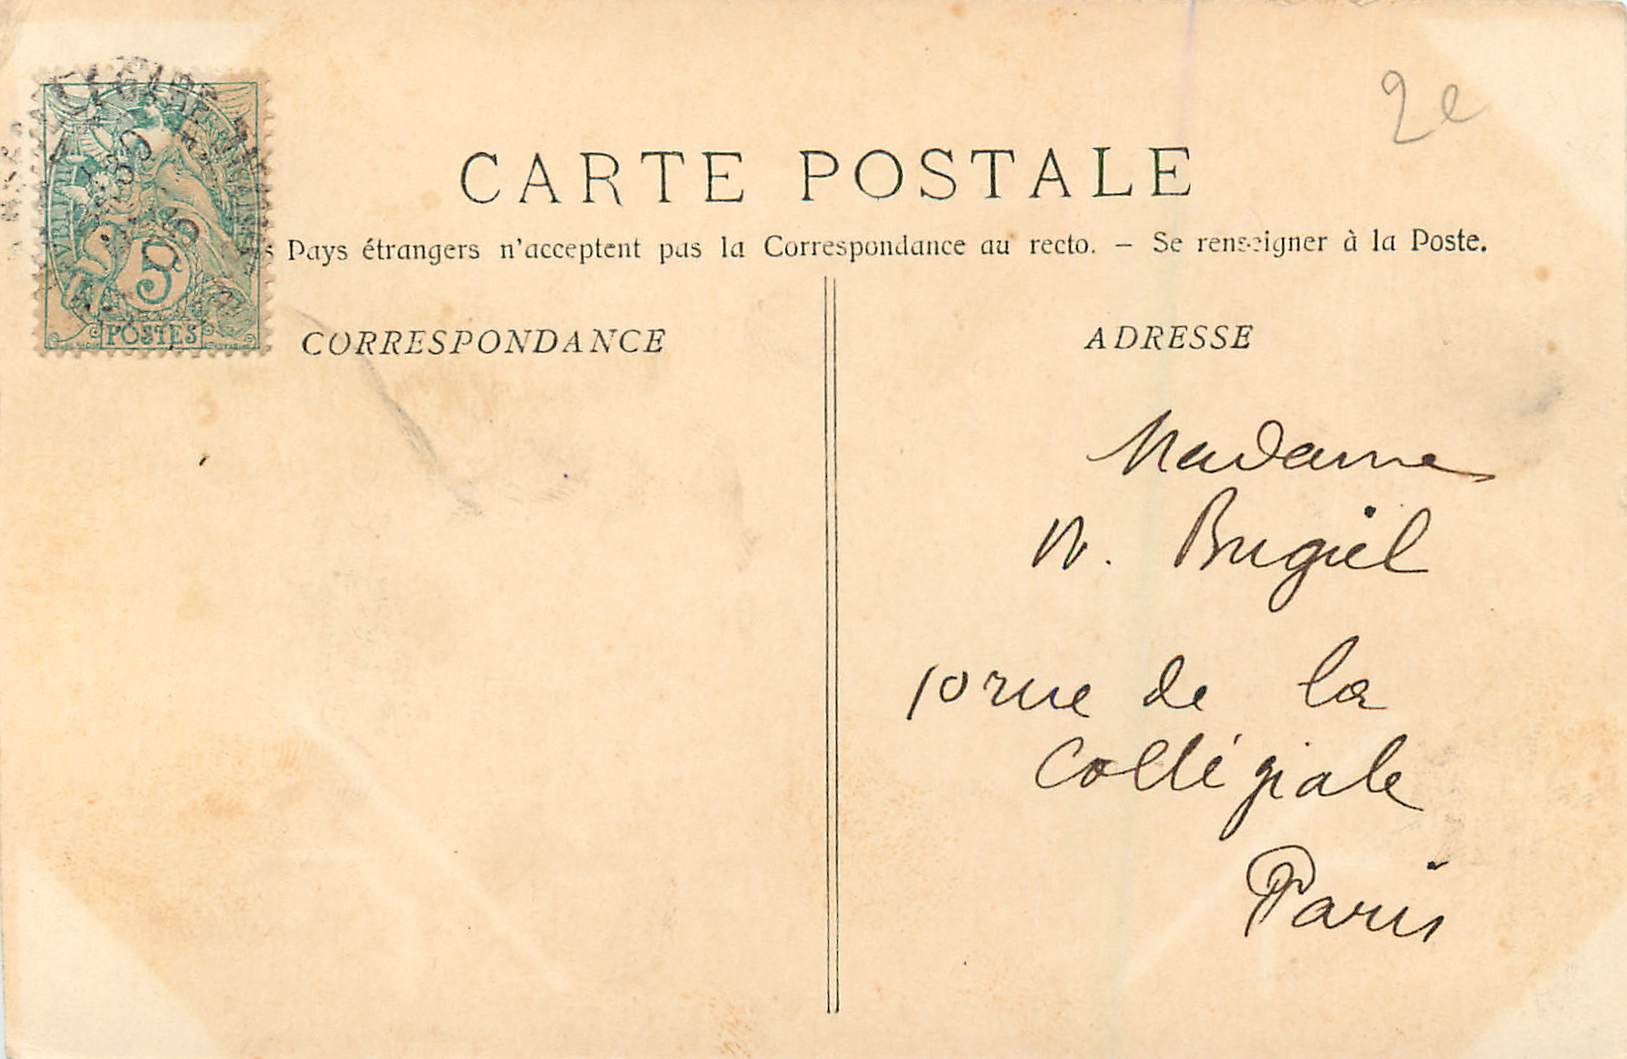 2e
CARTE POSTALE
s Pays étrangers n'acceptent pas la Correspondance au recto. — Se renseigner à la Poste.
5
POSTES
CORRESPONDANCE
ADRESSE
Madame
N. Bugiel
10 rue de la
Collégiale
Paris